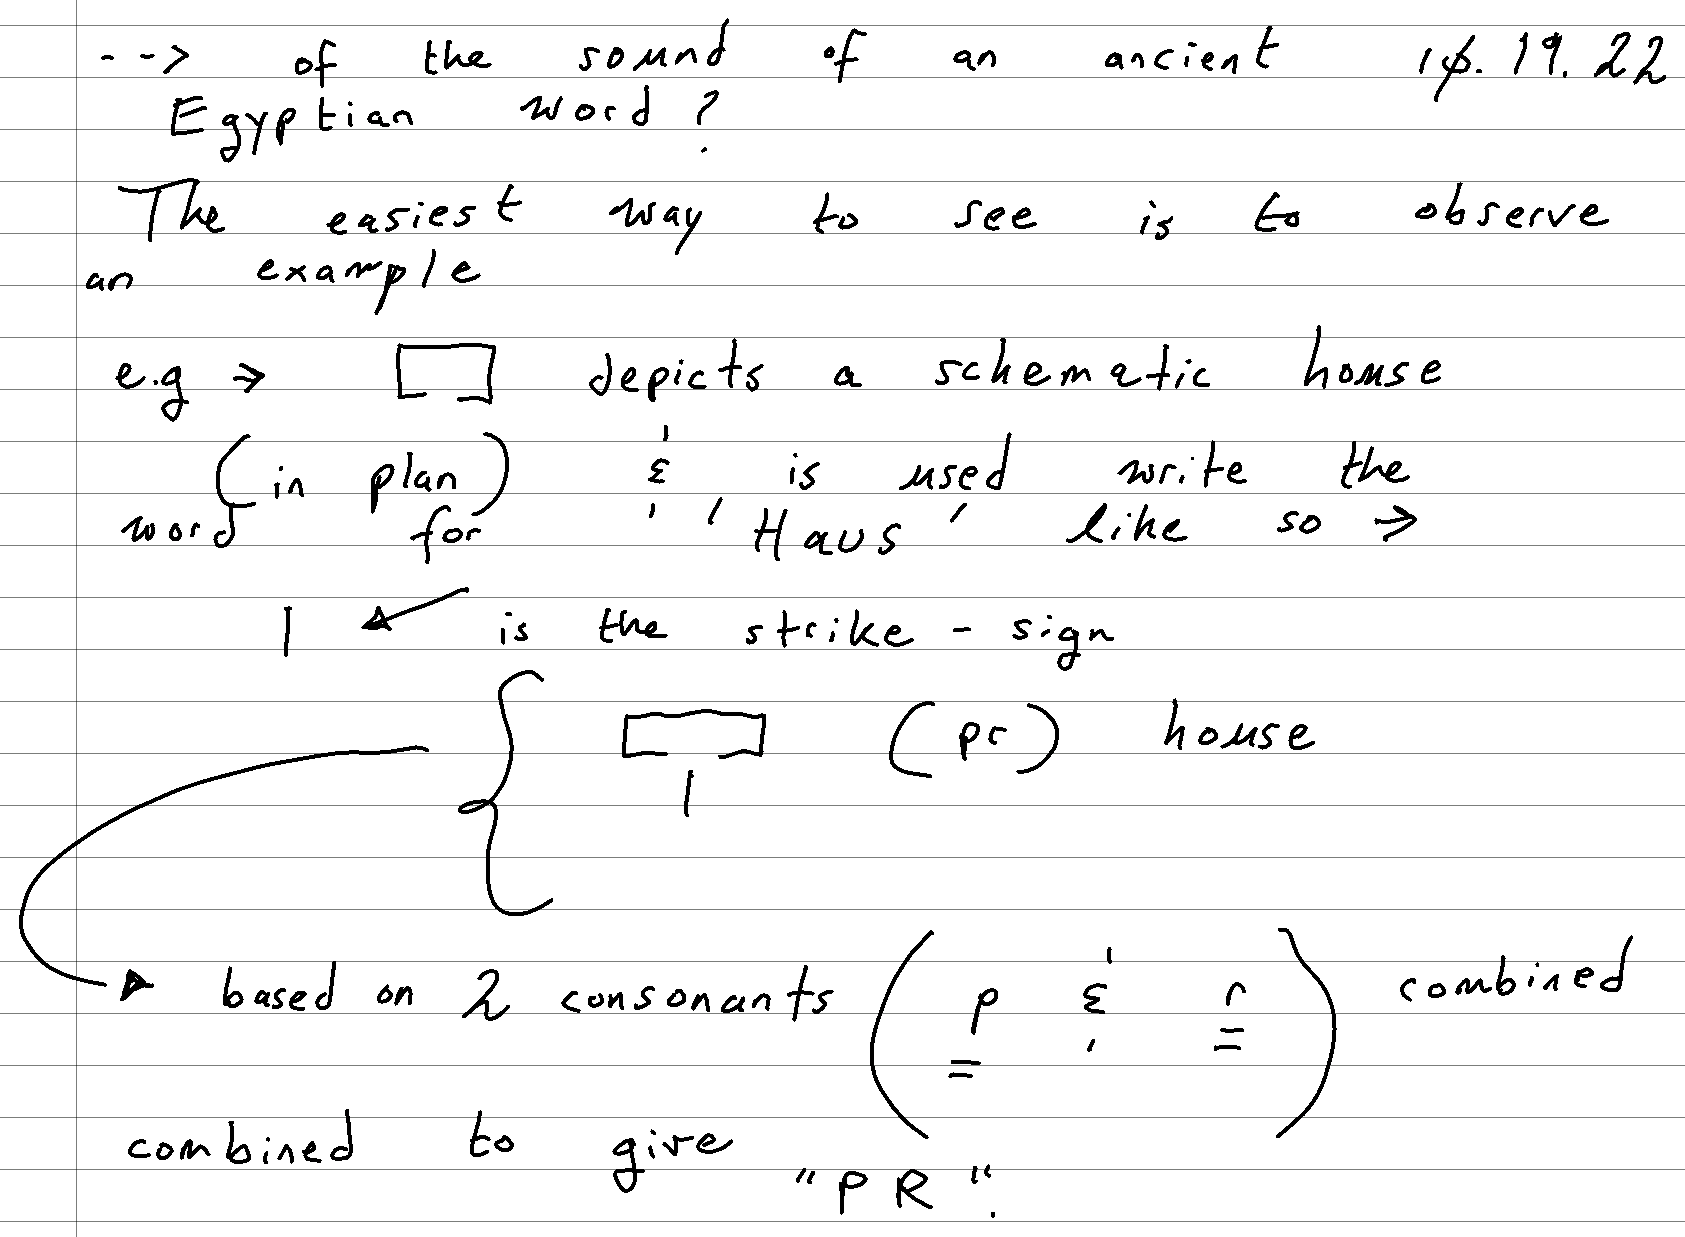 --> of the sound of an ancient 10.19.22
Egyptian word?
The easiest way to see is to observe
an example
e.g → depicts a schematic house
(in plan) & is used write the
word for 'Haus' like so →
| is the strike - sign
| (pr) house
based on 2 consonants (p & r) combined
combined to give "PR".